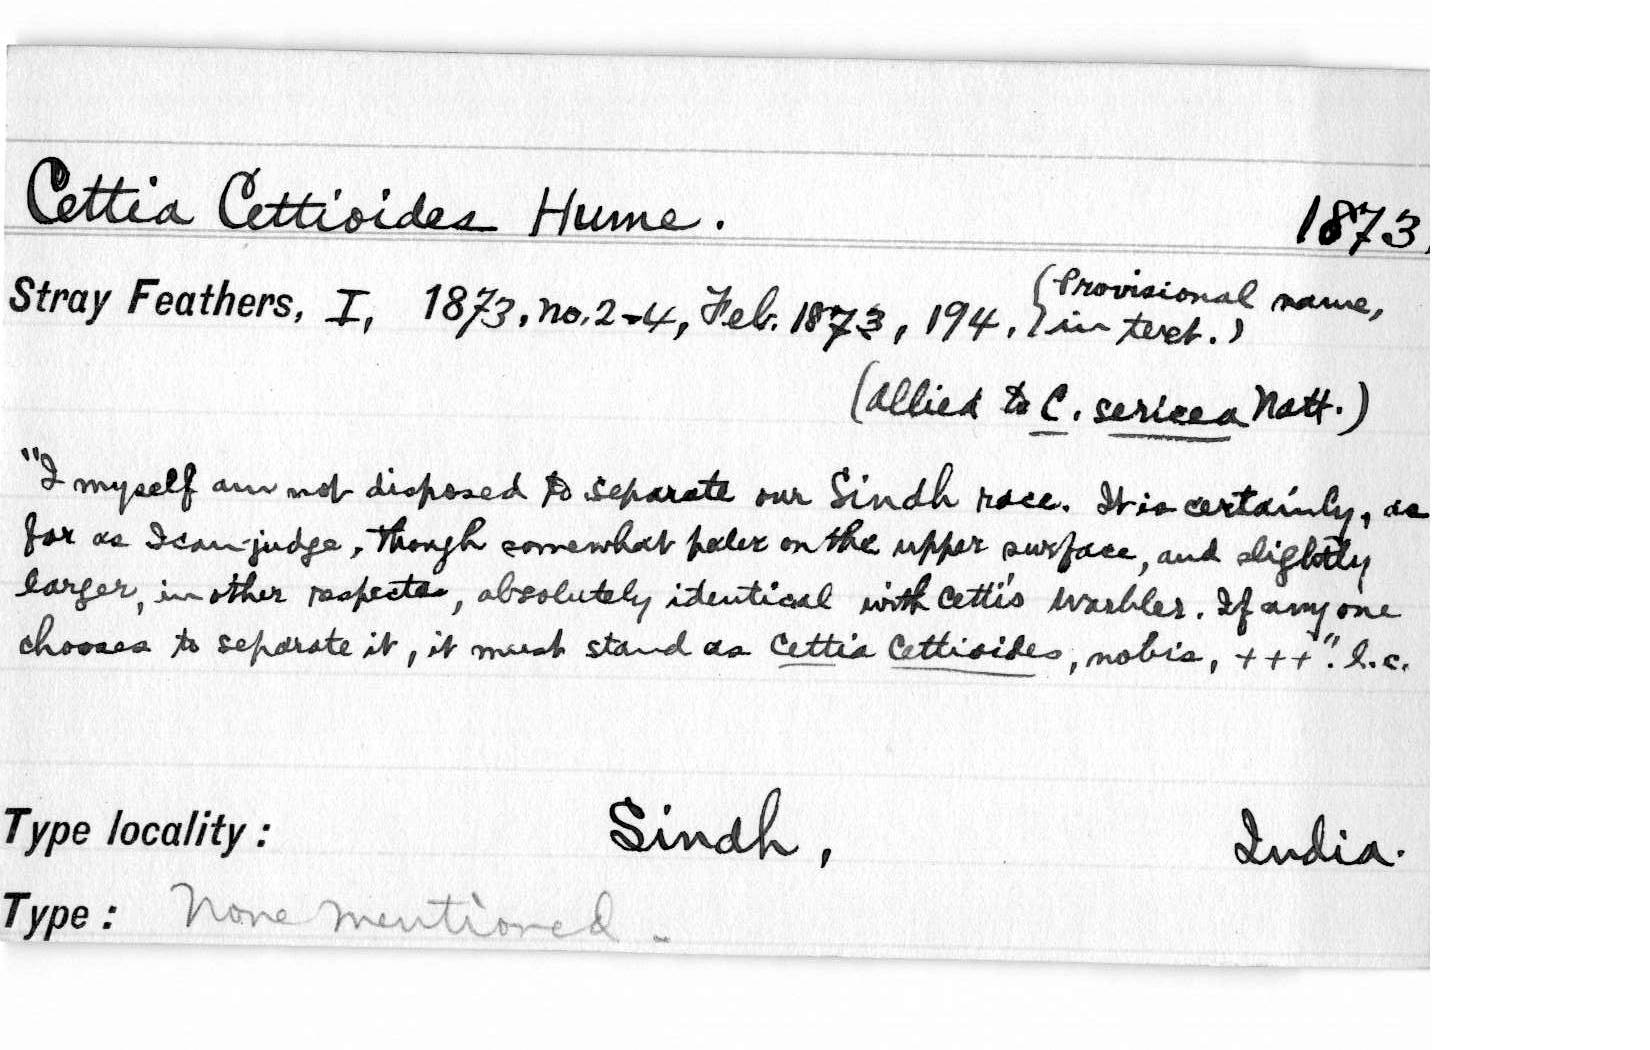 Cettia Cettioides Hume. 1873.
Stray Feathers, I, 1873, no. 2-4, Feb. 1873, 194. (Provisional name,
in text.)
(Allied to C. sericea Natt.)
"I myself am not disposed to separate our Sindh race. It is certainly, as
far as I can judge, though somewhat paler on the upper surface, and slightly
larger, in other respects, absolutely identical with Cetti's Warbler. If any one
chooses to separate it, it must stand as Cettia Cettioides, nobis, +++". l.c.
Type locality: Sindh, India.
Type: None mentioned.